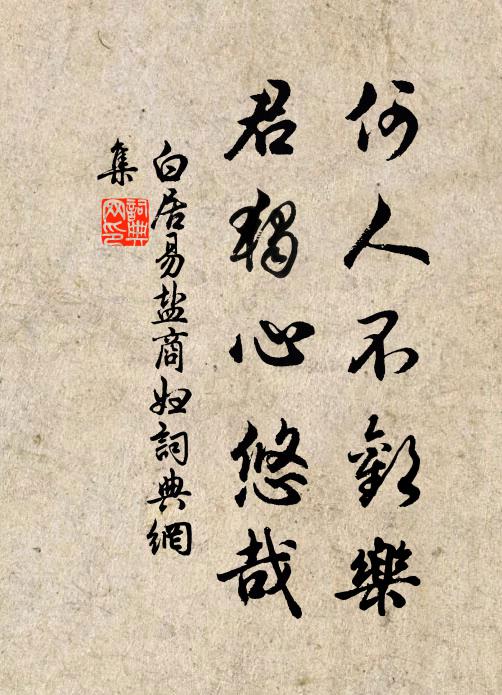 何人不歡樂
君獨心悠哉
白居易盐商妇詞典網
集
詞典
网印